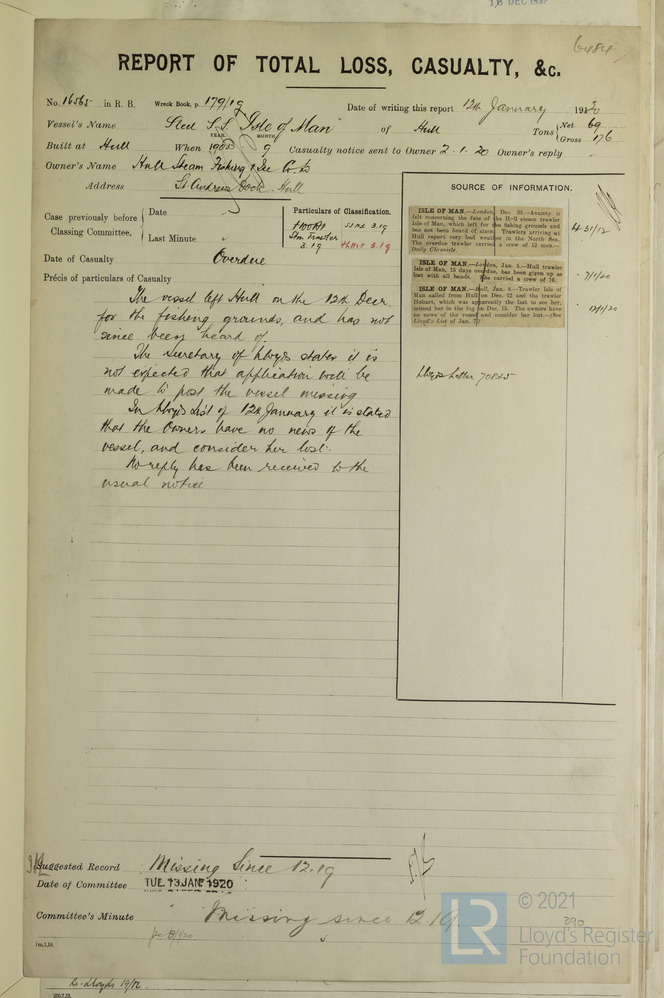 18 DEC 1957
6484
REPORT OF TOTAL LOSS, CASUALTY, &c.
No. 16565 in R. B. Wreck Book, p. 179/19 Date of writing this report 12th January 1920
Vessel's Name Steel S.S. "Isle of Man" of Hull Tons Net 69 Gross 176
Built at Hull When YEAR. MONTH. 1905 9 Casualty notice sent to Owner 2.1.20 Owner's reply
Owner's Name Hull Steam Fishing & Ice Co. Ld
Address St Andrews Dock Hull
Case previously before Classing Committee, Date
Last Minute
Particulars of Classification.
+100A1
Stm Trawler
3.19
Date of Casualty Overdue
Précis of particulars of Casualty
The vessel left Hull on the 12th Decr.
for the fishing grounds, and has not
since been heard of.
The Secretary of Lloyds states it is
not expected that application will be
made to post the vessel missing
In Lloyds List of 12th January it is stated
that the Owners have no news of the
vessel, and consider her lost.
No reply has been received to the
usual notice
SOURCE OF INFORMATION.
ISLE OF MAN.—London, Dec. 30.—Anxiety is
felt concerning the fate of the Hull steam trawler
Isle of Man, which left for the fishing grounds and
has not been heard of since. Trawlers arriving at
Hull report very bad weather in the North Sea.
The overdue trawler carried a crew of 12 men.—
Daily Chronicle.
31/12
ISLE OF MAN.—London, Jan. 5.—Hull trawler
Isle of Man, 15 days overdue, has been given up as
lost with all hands. She carried a crew of 10.
7/1/20
ISLE OF MAN.—Hull, Jan. 8.—Trawler Isle of
Man sailed from Hull on Dec. 12 and the trawler
Hobart, which was apparently the last to see her,
missed her in the fog on Dec. 15. The owners have
no news of the vessel and consider her lost.—(See
Lloyd's List of Jan. 7)
12/1/20
Lloyds Letter 70835
Suggested Record Missing Since 12.19
Date of Committee TUE. 13 JAN 1920
Committee's Minute Missing since 12.19.
390
© 2021
LR Lloyd's Register
Foundation
Lloyds 19/12